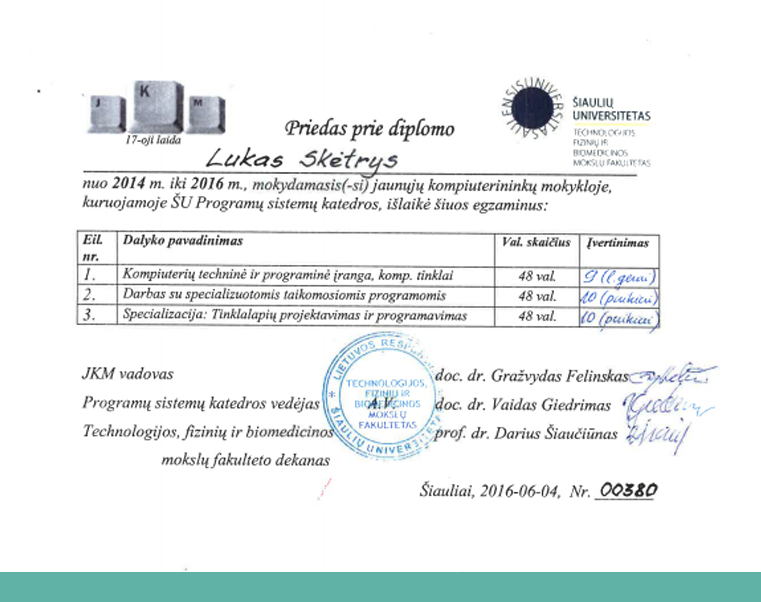 J K M
17-oji laida
ŠIAULIENSIS UNIVERSITAS
ŠIAULIŲ
UNIVERSITETAS
TECHNOLOGIJOS,
FIZINIŲ IR
BIOMEDICINOS
MOKSLŲ FAKULTETAS
Priedas prie diplomo
Lukas Skėtrys
nuo 2014 m. iki 2016 m., mokydamasis(-si) jaunųjų kompiuterininkų mokykloje,
kuruojamoje ŠU Programų sistemų katedros, išlaikė šiuos egzaminus:
Eil. nr. Dalyko pavadinimas Val. skaičius Įvertinimas
1. Kompiuterių techninė ir programinė įranga, komp. tinklai 48 val. 9 (l. gerai)
2. Darbas su specializuotomis taikomosiomis programomis 48 val. 10 (puikiai)
3. Specializacija: Tinklalapių projektavimas ir programavimas 48 val. 10 (puikiai)
JKM vadovas doc. dr. Gražvydas Felinskas
Programų sistemų katedros vedėjas A.V. doc. dr. Vaidas Giedrimas
Technologijos, fizinių ir biomedicinos prof. dr. Darius Šiaučiūnas
mokslų fakulteto dekanas
TECHNOLOGIJOS,
FIZINIŲ IR
BIOMEDICINOS
MOKSLŲ
FAKULTETAS
Šiauliai, 2016-06-04, Nr. 00380